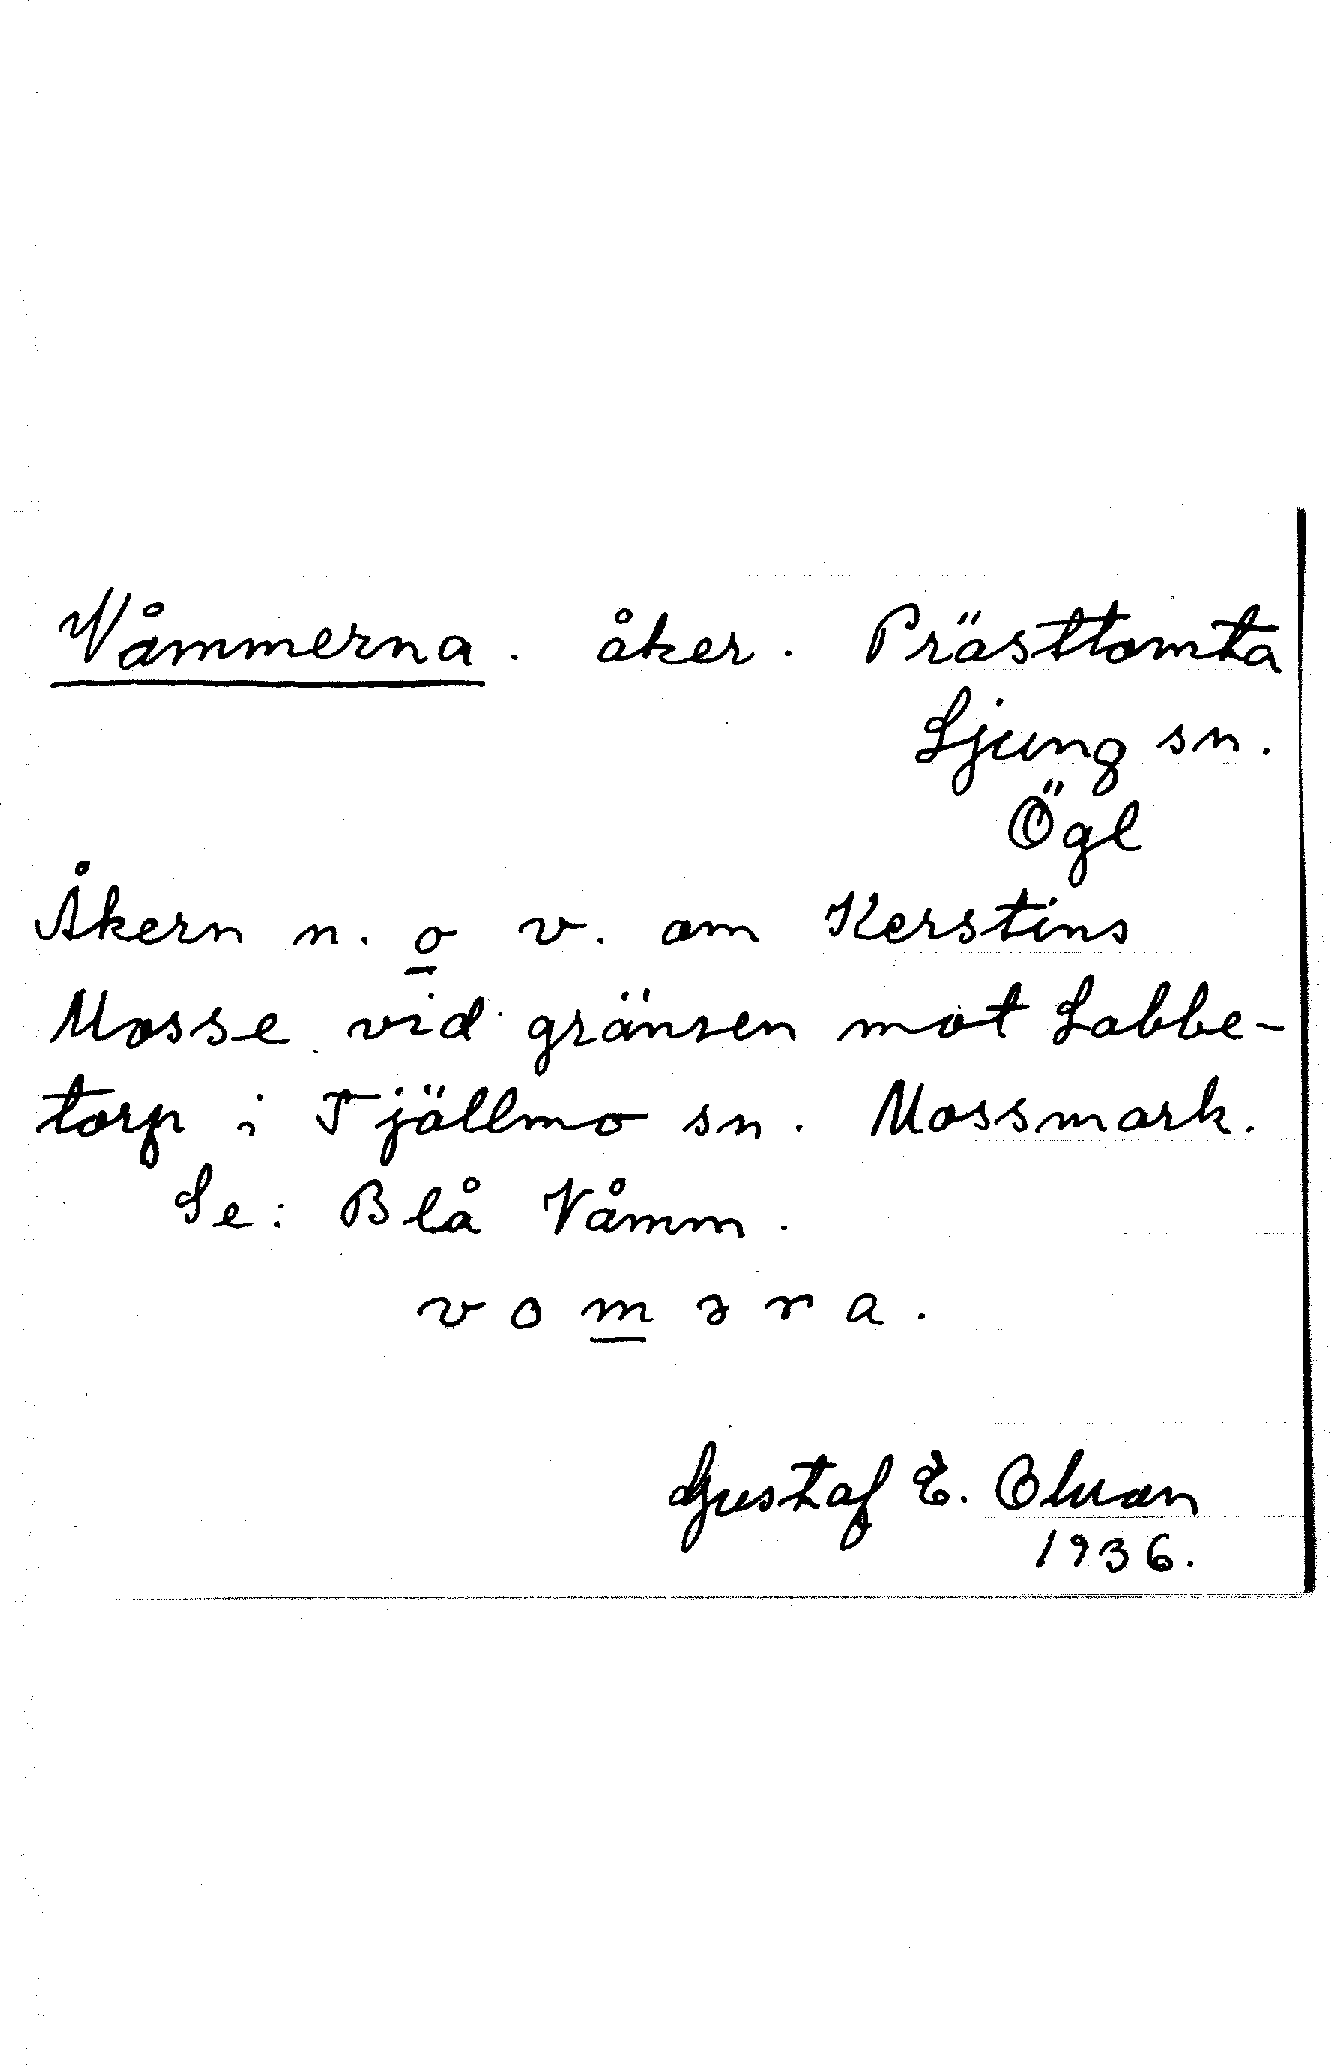 Våmmerna. åker. Prästtomta
Ljung sn.
Ögl
Åkern n. o v. om Kerstins
Mosse vid gränsen mot Labbe-
torp i Tjällmo sn. Mossmark.
Se: Blå Våmm.
v o m ə r a.
Gustaf E. Olsson
1936.